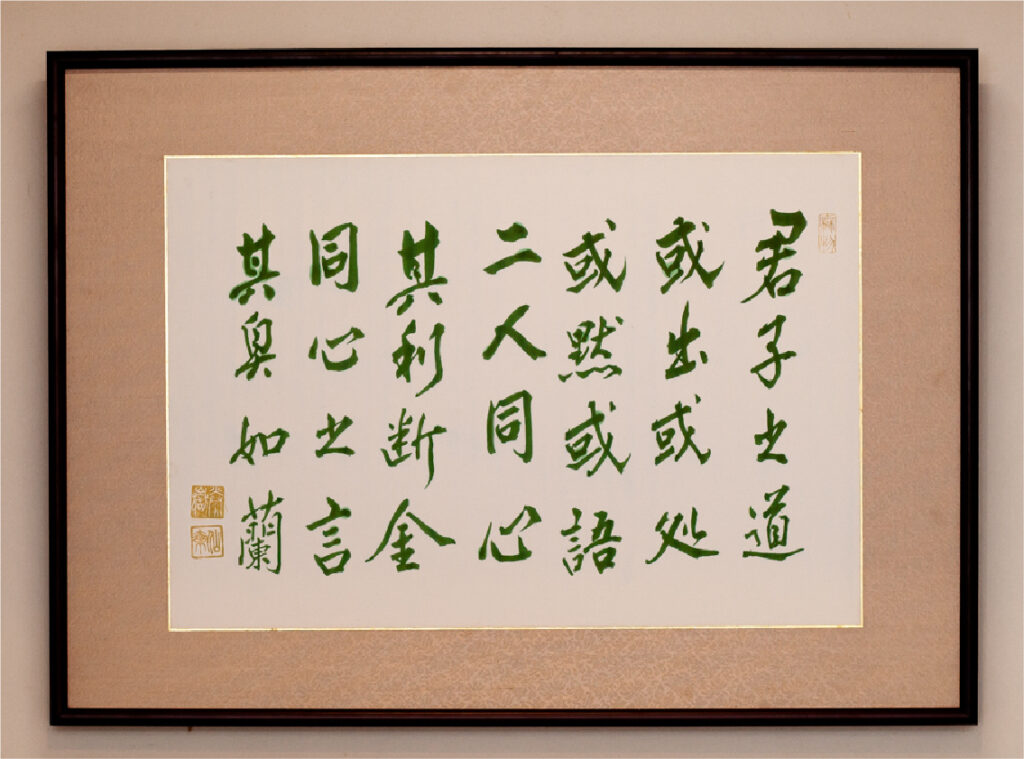 君子之道
或出或処
或黙或語
二人同心
其利断金
同心之言
其臭如蘭